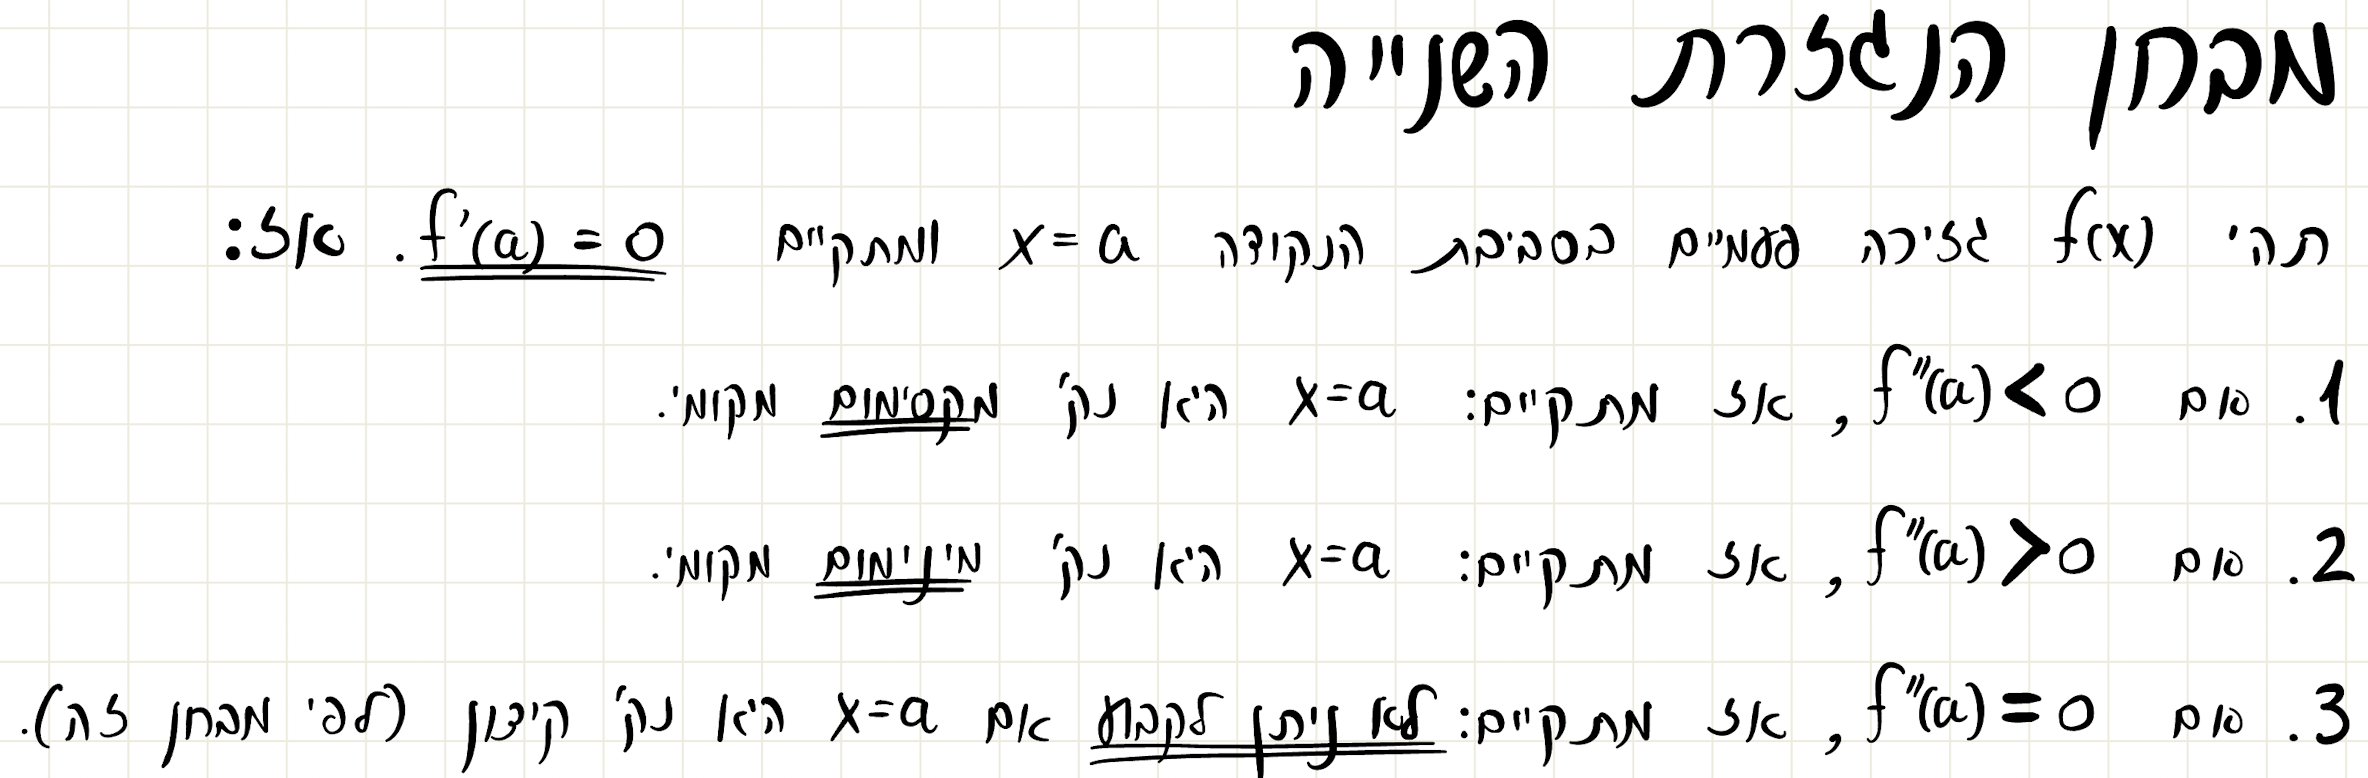 מבחן הנגזרת השנייה
תהי f(x) גזירה פעמיים בסביבת הנקודה x=a ומתקיים f'(a) = 0. אז:
1. אם f''(a)<0, אז מתקיים: x=a היא נק' מקסימום מקומי.
2. אם f''(a)>0, אז מתקיים: x=a היא נק' מינימום מקומי.
3. אם f''(a)=0, אז מתקיים: לא ניתן לקבוע אם x=a היא נק' קיצון (לפי מבחן זה).